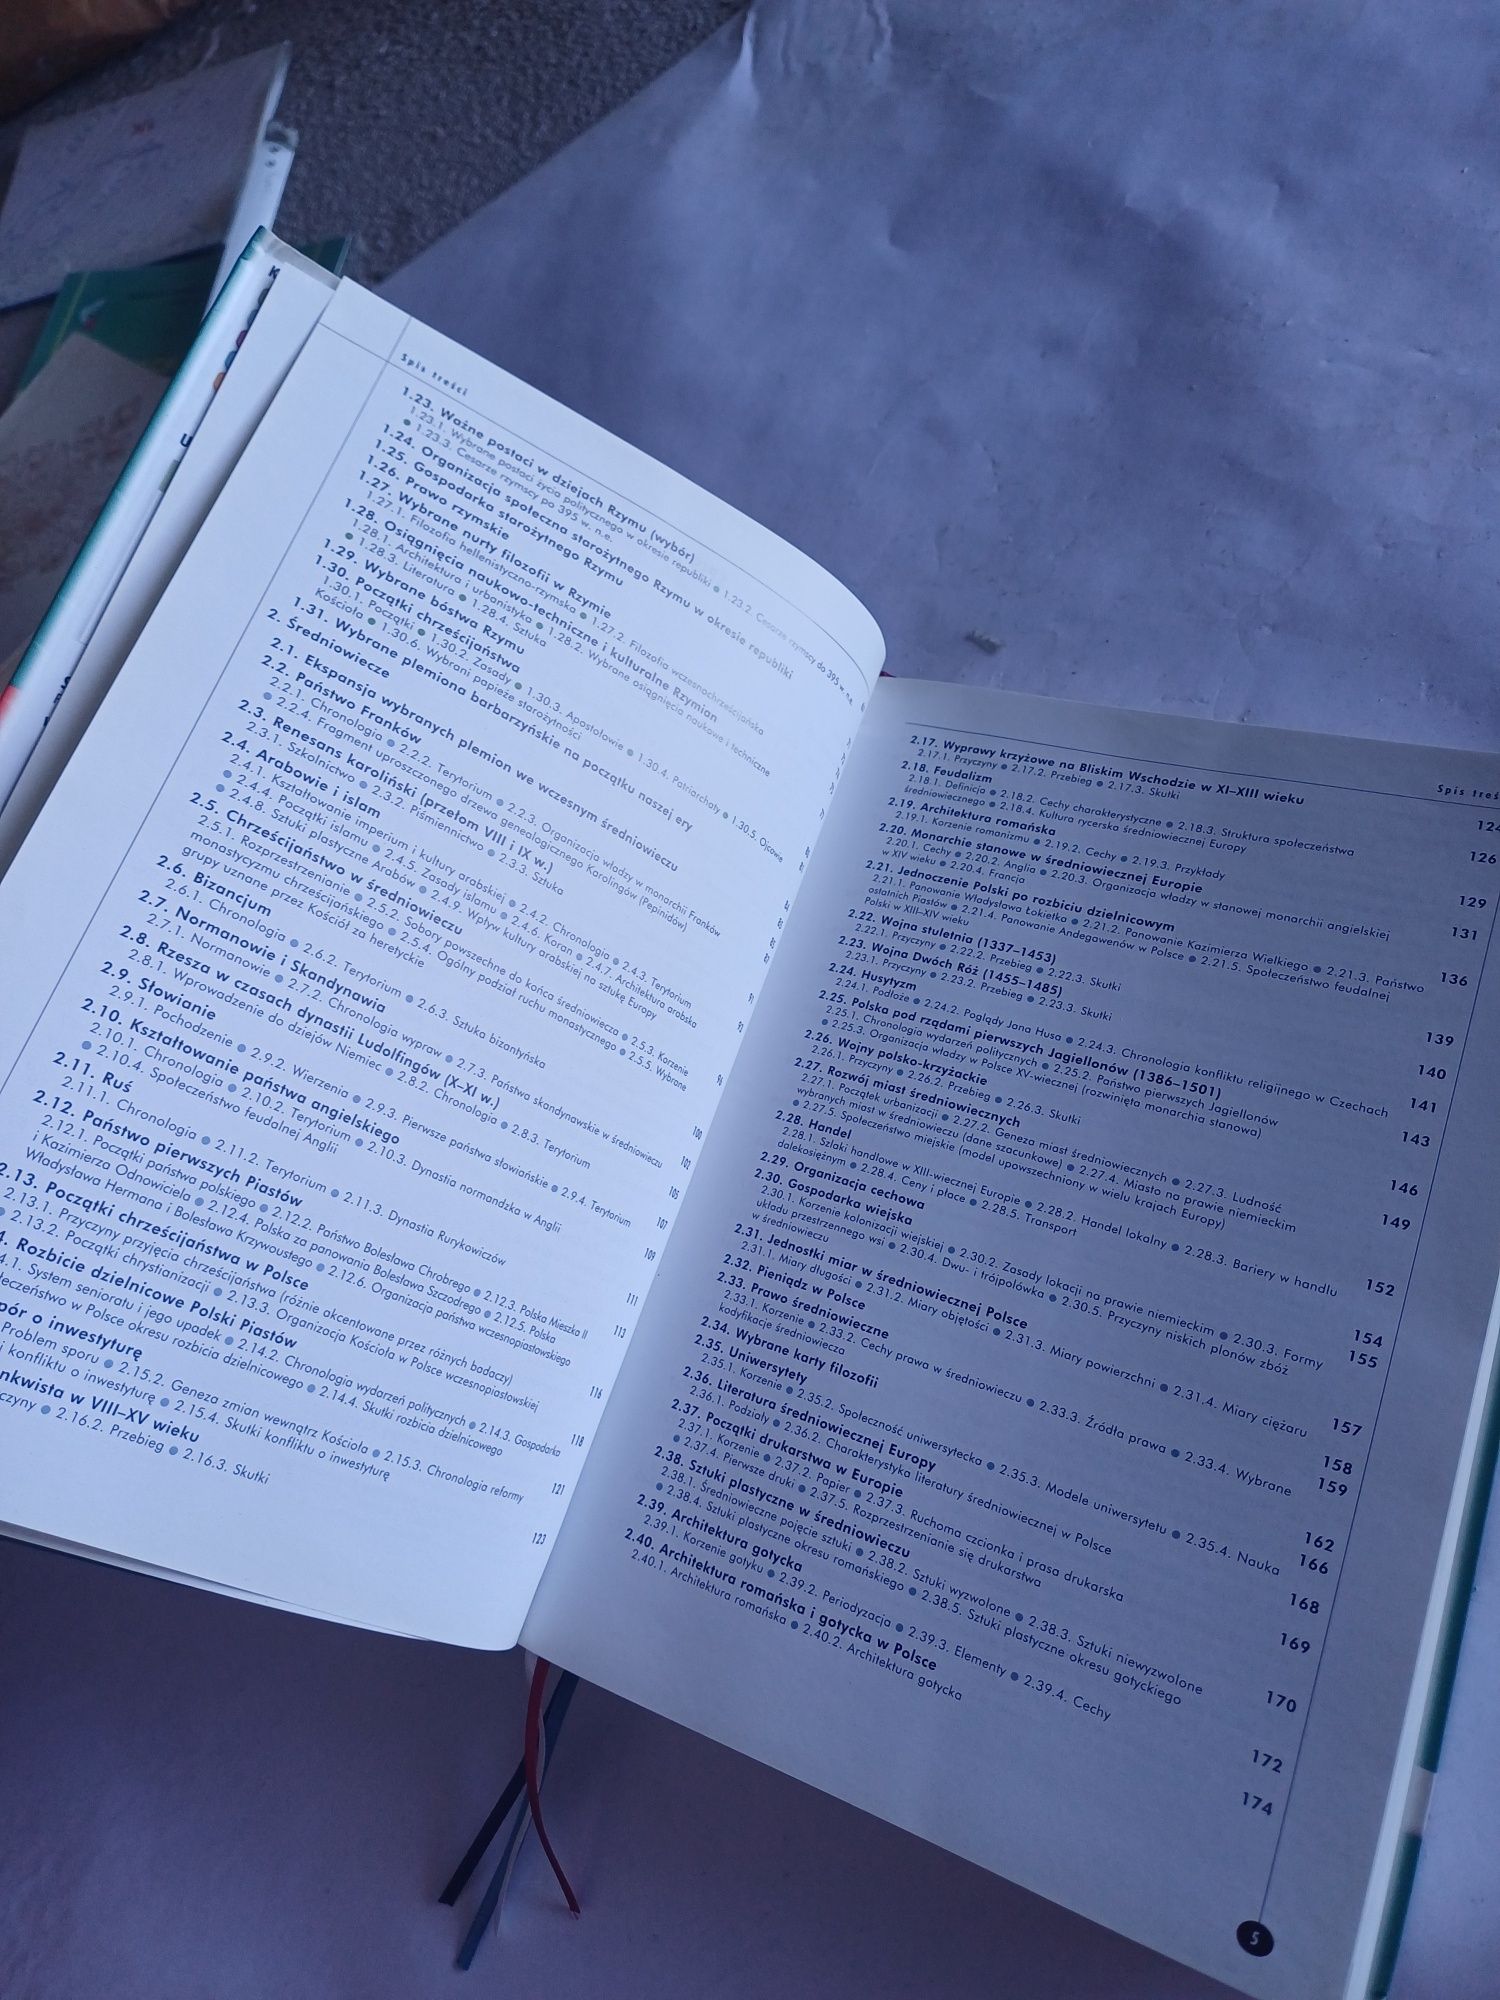 Spis treści
1.23. Ważne postaci w dziejach Rzymu (wybór)
1.23.1. Wybrane postaci życia politycznego w okresie republiki ● 1.23.2. Cesarze rzymscy do 395 w. n.e.
● 1.23.3. Cesarze rzymscy po 395 w. n.e.
1.24. Organizacja społeczna starożytnego Rzymu w okresie republiki
1.25. Gospodarka starożytnego Rzymu
1.26. Prawo rzymskie
1.27. Wybrane nurty filozofii w Rzymie
1.27.1. Filozofia hellenistyczno-rzymska ● 1.27.2. Filozofia wczesnochrześcijańska
1.28. Osiągnięcia naukowo-techniczne i kulturalne Rzymian
1.28.1. Architektura i urbanistyka ● 1.28.2. Wybrane osiągnięcia naukowe i techniczne
● 1.28.3. Literatura ● 1.28.4. Sztuka
1.29. Wybrane bóstwa Rzymu
1.30. Początki chrześcijaństwa
1.30.1. Początki ● 1.30.2. Zasady ● 1.30.3. Apostołowie ● 1.30.4. Patriarchaty ● 1.30.5. Ojcowie
Kościoła ● 1.30.6. Wybrani papieże starożytności
1.31. Wybrane plemiona barbarzyńskie na początku naszej ery
2. Średniowiecze
2.1. Ekspansja wybranych plemion we wczesnym średniowieczu
2.2. Państwo Franków
2.2.1. Chronologia ● 2.2.2. Terytorium ● 2.2.3. Organizacja władzy w monarchii Franków
● 2.2.4. Fragment uproszczonego drzewa genealogicznego Karolingów (Pepinidów)
2.3. Renesans karoliński (przełom VIII i IX w.)
2.3.1. Szkolnictwo ● 2.3.2. Piśmiennictwo ● 2.3.3. Sztuka
2.4. Arabowie i islam
2.4.1. Kształtowanie imperium i kultury arabskiej ● 2.4.2. Chronologia ● 2.4.3. Terytorium
● 2.4.4. Początki islamu ● 2.4.5. Zasady islamu ● 2.4.6. Koran ● 2.4.7. Architektura arabska
● 2.4.8. Sztuki plastyczne Arabów ● 2.4.9. Wpływ kultury arabskiej na sztukę Europy
2.5. Chrześcijaństwo w średniowieczu
2.5.1. Rozprzestrzenianie ● 2.5.2. Sobory powszechne do końca średniowiecza ● 2.5.3. Korzenie
monastycyzmu chrześcijańskiego ● 2.5.4. Ogólny podział ruchu monastycznego ● 2.5.5. Wybrane
grupy uznane przez Kościół za heretyckie
2.6. Bizancjum
2.6.1. Chronologia ● 2.6.2. Terytorium ● 2.6.3. Sztuka bizantyńska
2.7. Normanowie i Skandynawia
2.7.1. Normanowie ● 2.7.2. Chronologia wypraw ● 2.7.3. Państwa skandynawskie w średniowieczu 100
2.8. Rzesza w czasach dynastii Ludolfingów (X–XI w.)
2.8.1. Wprowadzenie do dziejów Niemiec ● 2.8.2. Chronologia ● 2.8.3. Terytorium 102
2.9. Słowianie
2.9.1. Pochodzenie ● 2.9.2. Wierzenia ● 2.9.3. Pierwsze państwa słowiańskie ● 2.9.4. Terytorium 105
2.10. Kształtowanie państwa angielskiego
2.10.1. Chronologia ● 2.10.2. Terytorium ● 2.10.3. Dynastia normandzka w Anglii 107
● 2.10.4. Społeczeństwo feudalnej Anglii
2.11. Ruś
2.11.1. Chronologia ● 2.11.2. Terytorium ● 2.11.3. Dynastia Rurykowiczów 109
2.12. Państwo pierwszych Piastów
2.12.1. Początki państwa polskiego ● 2.12.2. Państwo Bolesława Chrobrego ● 2.12.3. Polska Mieszka II 111
i Kazimierza Odnowiciela ● 2.12.4. Polska za panowania Bolesława Szczodrego ● 2.12.5. Polska
Władysława Hermana i Bolesława Krzywoustego ● 2.12.6. Organizacja państwa wczesnopiastowskiego
2.13. Początki chrześcijaństwa w Polsce 113
2.13.1. Przyczyny przyjęcia chrześcijaństwa (różnie akcentowane przez różnych badaczy)
● 2.13.2. Początki chrystianizacji ● 2.13.3. Organizacja Kościoła w Polsce wczesnopiastowskiej
4. Rozbicie dzielnicowe Polski Piastów 116
4.1. System senioratu i jego upadek ● 2.14.2. Chronologia wydarzeń politycznych ● 2.14.3. Gospodarka
łeczeństwo w Polsce okresu rozbicia dzielnicowego ● 2.14.4. Skutki rozbicia dzielnicowego
pór o inwestyturę 118
Problem sporu ● 2.15.2. Geneza zmian wewnątrz Kościoła ● 2.15.3. Chronologia reformy
i konfliktu o inwestyturę ● 2.15.4. Skutki konfliktu o inwestyturę
nkwista w VIII–XV wieku 121
czyny ● 2.16.2. Przebieg ● 2.16.3. Skutki
123
Spis treś
2.17. Wyprawy krzyżowe na Bliskim Wschodzie w XI–XIII wieku 124
2.17.1. Przyczyny ● 2.17.2. Przebieg ● 2.17.3. Skutki
2.18. Feudalizm 126
2.18.1. Definicja ● 2.18.2. Cechy charakterystyczne ● 2.18.3. Struktura społeczeństwa
średniowiecznego ● 2.18.4. Kultura rycerska średniowiecznej Europy
2.19. Architektura romańska 129
2.19.1. Korzenie romanizmu ● 2.19.2. Cechy ● 2.19.3. Przykłady
2.20. Monarchie stanowe w średniowiecznej Europie 131
2.20.1. Cechy ● 2.20.2. Anglia ● 2.20.3. Organizacja władzy w stanowej monarchii angielskiej
w XIV wieku ● 2.20.4. Francja
2.21. Jednoczenie Polski po rozbiciu dzielnicowym 136
2.21.1. Panowanie Władysława Łokietka ● 2.21.2. Panowanie Kazimierza Wielkiego ● 2.21.3. Państwo
ostatnich Piastów ● 2.21.4. Panowanie Andegawenów w Polsce ● 2.21.5. Społeczeństwo feudalnej
Polski w XIII–XIV wieku
2.22. Wojna stuletnia (1337–1453) 139
2.22.1. Przyczyny ● 2.22.2. Przebieg ● 2.22.3. Skutki
2.23. Wojna Dwóch Róż (1455–1485) 140
2.23.1. Przyczyny ● 2.23.2. Przebieg ● 2.23.3. Skutki
2.24. Husytyzm 141
2.24.1. Podłoże ● 2.24.2. Poglądy Jana Husa ● 2.24.3. Chronologia konfliktu religijnego w Czechach
2.25. Polska pod rządami pierwszych Jagiellonów (1386–1501) 143
2.25.1. Chronologia wydarzeń politycznych ● 2.25.2. Państwo pierwszych Jagiellonów
● 2.25.3. Organizacja władzy w Polsce XV-wiecznej (rozwinięta monarchia stanowa)
2.26. Wojny polsko-krzyżackie 146
2.26.1. Przyczyny ● 2.26.2. Przebieg ● 2.26.3. Skutki
2.27. Rozwój miast średniowiecznych 149
2.27.1. Początek urbanizacji ● 2.27.2. Geneza miast średniowiecznych ● 2.27.3. Ludność
wybranych miast w średniowieczu (dane szacunkowe) ● 2.27.4. Miasto na prawie niemieckim
● 2.27.5. Społeczeństwo miejskie (model upowszechniony w wielu krajach Europy)
2.28. Handel 152
2.28.1. Szlaki handlowe w XIII-wiecznej Europie ● 2.28.2. Handel lokalny ● 2.28.3. Bariery w handlu
dalekosiężnym ● 2.28.4. Ceny i płace ● 2.28.5. Transport
2.29. Organizacja cechowa 154
2.30. Gospodarka wiejska 155
2.30.1. Korzenie kolonizacji wiejskiej ● 2.30.2. Zasady lokacji na prawie niemieckim ● 2.30.3. Formy
układu przestrzennego wsi ● 2.30.4. Dwu- i trójpolówka ● 2.30.5. Przyczyny niskich plonów zbóż
w średniowieczu
2.31. Jednostki miar w średniowiecznej Polsce 157
2.31.1. Miary długości ● 2.31.2. Miary objętości ● 2.31.3. Miary powierzchni ● 2.31.4. Miary ciężaru
2.32. Pieniądz w Polsce 158
2.33. Prawo średniowieczne 159
2.33.1. Korzenie ● 2.33.2. Cechy prawa w średniowieczu ● 2.33.3. Źródła prawa ● 2.33.4. Wybrane
kodyfikacje średniowiecza
2.34. Wybrane karty filozofii 162
2.35. Uniwersytety 166
2.35.1. Korzenie ● 2.35.2. Społeczność uniwersytecka ● 2.35.3. Modele uniwersytetu ● 2.35.4. Nauka
2.36. Literatura średniowiecznej Europy 168
2.36.1. Podziały ● 2.36.2. Charakterystyka literatury średniowiecznej w Polsce
2.37. Początki drukarstwa w Europie 169
2.37.1. Korzenie ● 2.37.2. Papier ● 2.37.3. Ruchoma czcionka i prasa drukarska
● 2.37.4. Pierwsze druki ● 2.37.5. Rozprzestrzenianie się drukarstwa
2.38. Sztuki plastyczne w średniowieczu 170
2.38.1. Średniowieczne pojęcie sztuki ● 2.38.2. Sztuki wyzwolone ● 2.38.3. Sztuki niewyzwolone
● 2.38.4. Sztuki plastyczne okresu romańskiego ● 2.38.5. Sztuki plastyczne okresu gotyckiego
2.39. Architektura gotycka 172
2.39.1. Korzenie gotyku ● 2.39.2. Periodyzacja ● 2.39.3. Elementy ● 2.39.4. Cechy
2.40. Architektura romańska i gotycka w Polsce 174
2.40.1. Architektura romańska ● 2.40.2. Architektura gotycka
5